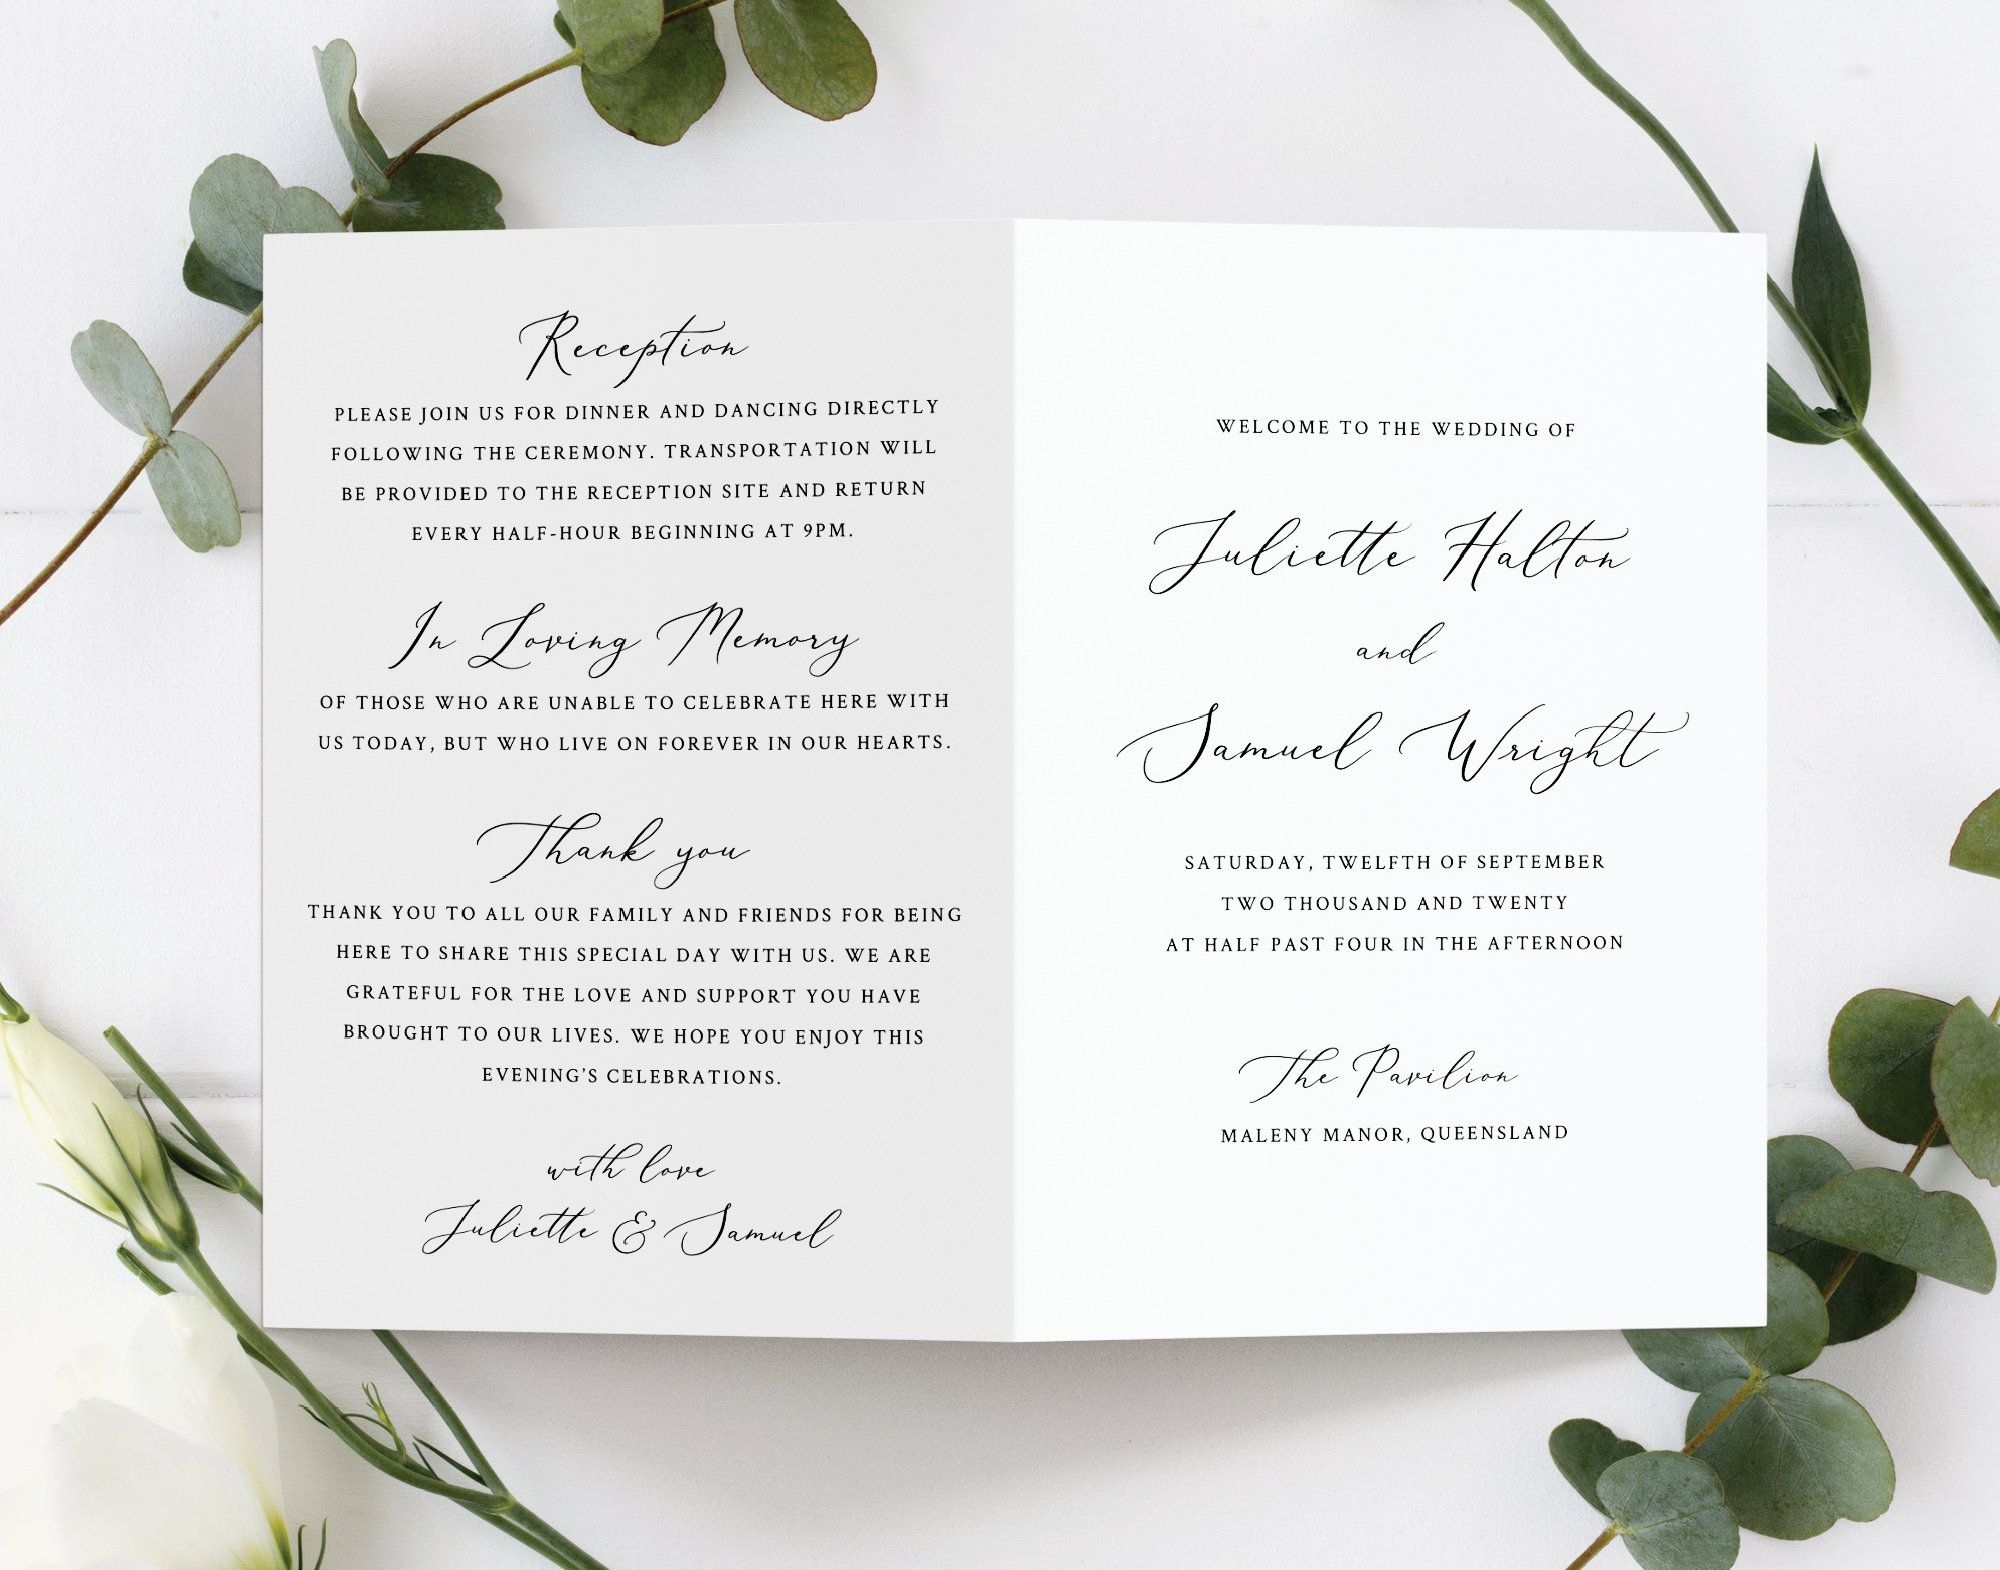 Reception
PLEASE JOIN US FOR DINNER AND DANCING DIRECTLY
FOLLOWING THE CEREMONY. TRANSPORTATION WILL
BE PROVIDED TO THE RECEPTION SITE AND RETURN
EVERY HALF-HOUR BEGINNING AT 9PM.
In Loving Memory
OF THOSE WHO ARE UNABLE TO CELEBRATE HERE WITH
US TODAY, BUT WHO LIVE ON FOREVER IN OUR HEARTS.
Thank you
THANK YOU TO ALL OUR FAMILY AND FRIENDS FOR BEING
HERE TO SHARE THIS SPECIAL DAY WITH US. WE ARE
GRATEFUL FOR THE LOVE AND SUPPORT YOU HAVE
BROUGHT TO OUR LIVES. WE HOPE YOU ENJOY THIS
EVENING'S CELEBRATIONS.
with love
Juliette & Samuel
WELCOME TO THE WEDDING OF
Juliette Halton
and
Samuel Wright
SATURDAY, TWELFTH OF SEPTEMBER
TWO THOUSAND AND TWENTY
AT HALF PAST FOUR IN THE AFTERNOON
The Pavilion
MALENY MANOR, QUEENSLAND